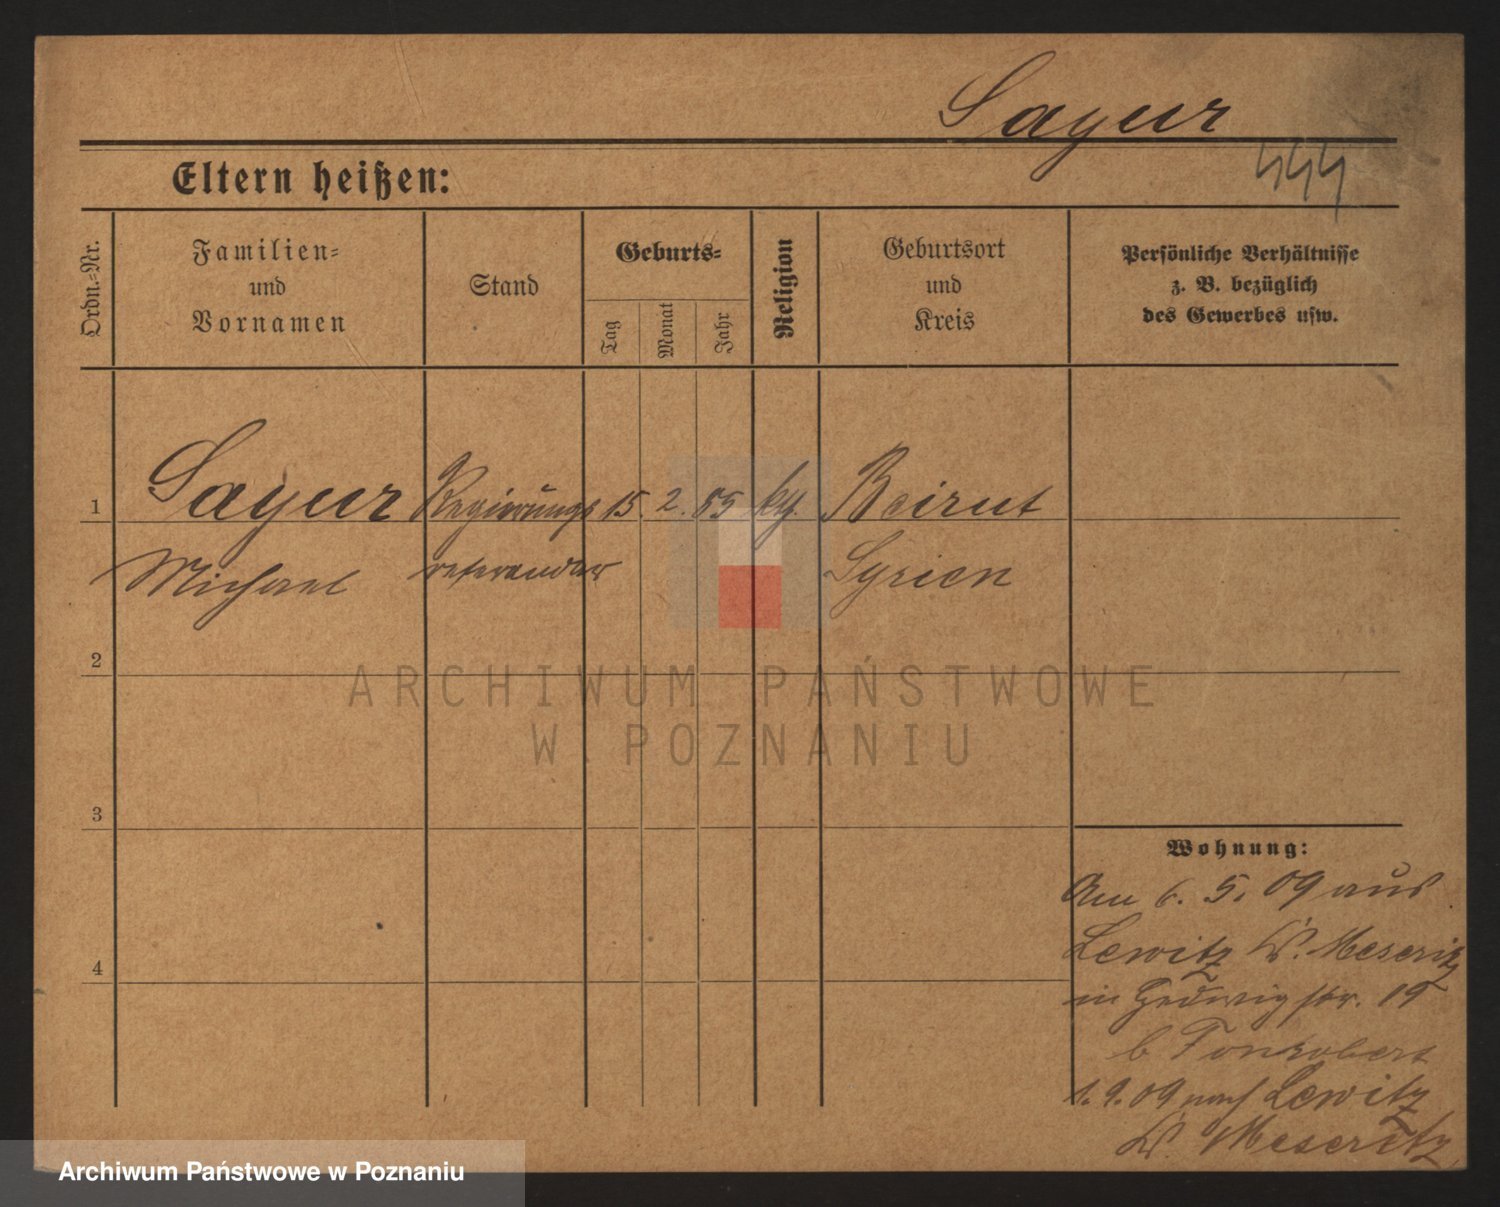 Sayur
444
Eltern heißen:
Ordn.-Nr.
Familien-
und
Vornamen
Stand
Geburts-
Tag
Monat
Jahr
Religion
Geburtsort
und
Kreis
Persönliche Verhältnisse
z. B. bezüglich
des Gewerbes usw.
1 Sayur Regirungs 15. 2. 85 kg. Beirut
Michael referendar Syrien
2
ARCHIWUM PAŃSTWOWE
W POZNANIU
3
Wohnung:
Am 6. 5. 09 aus
Lewitz K. Meseritz
4
in Hedwig str. 19
b Tonrobert
1. 9. 09 nach Lewitz
K. Meseritz
Archiwum Państwowe w Poznaniu